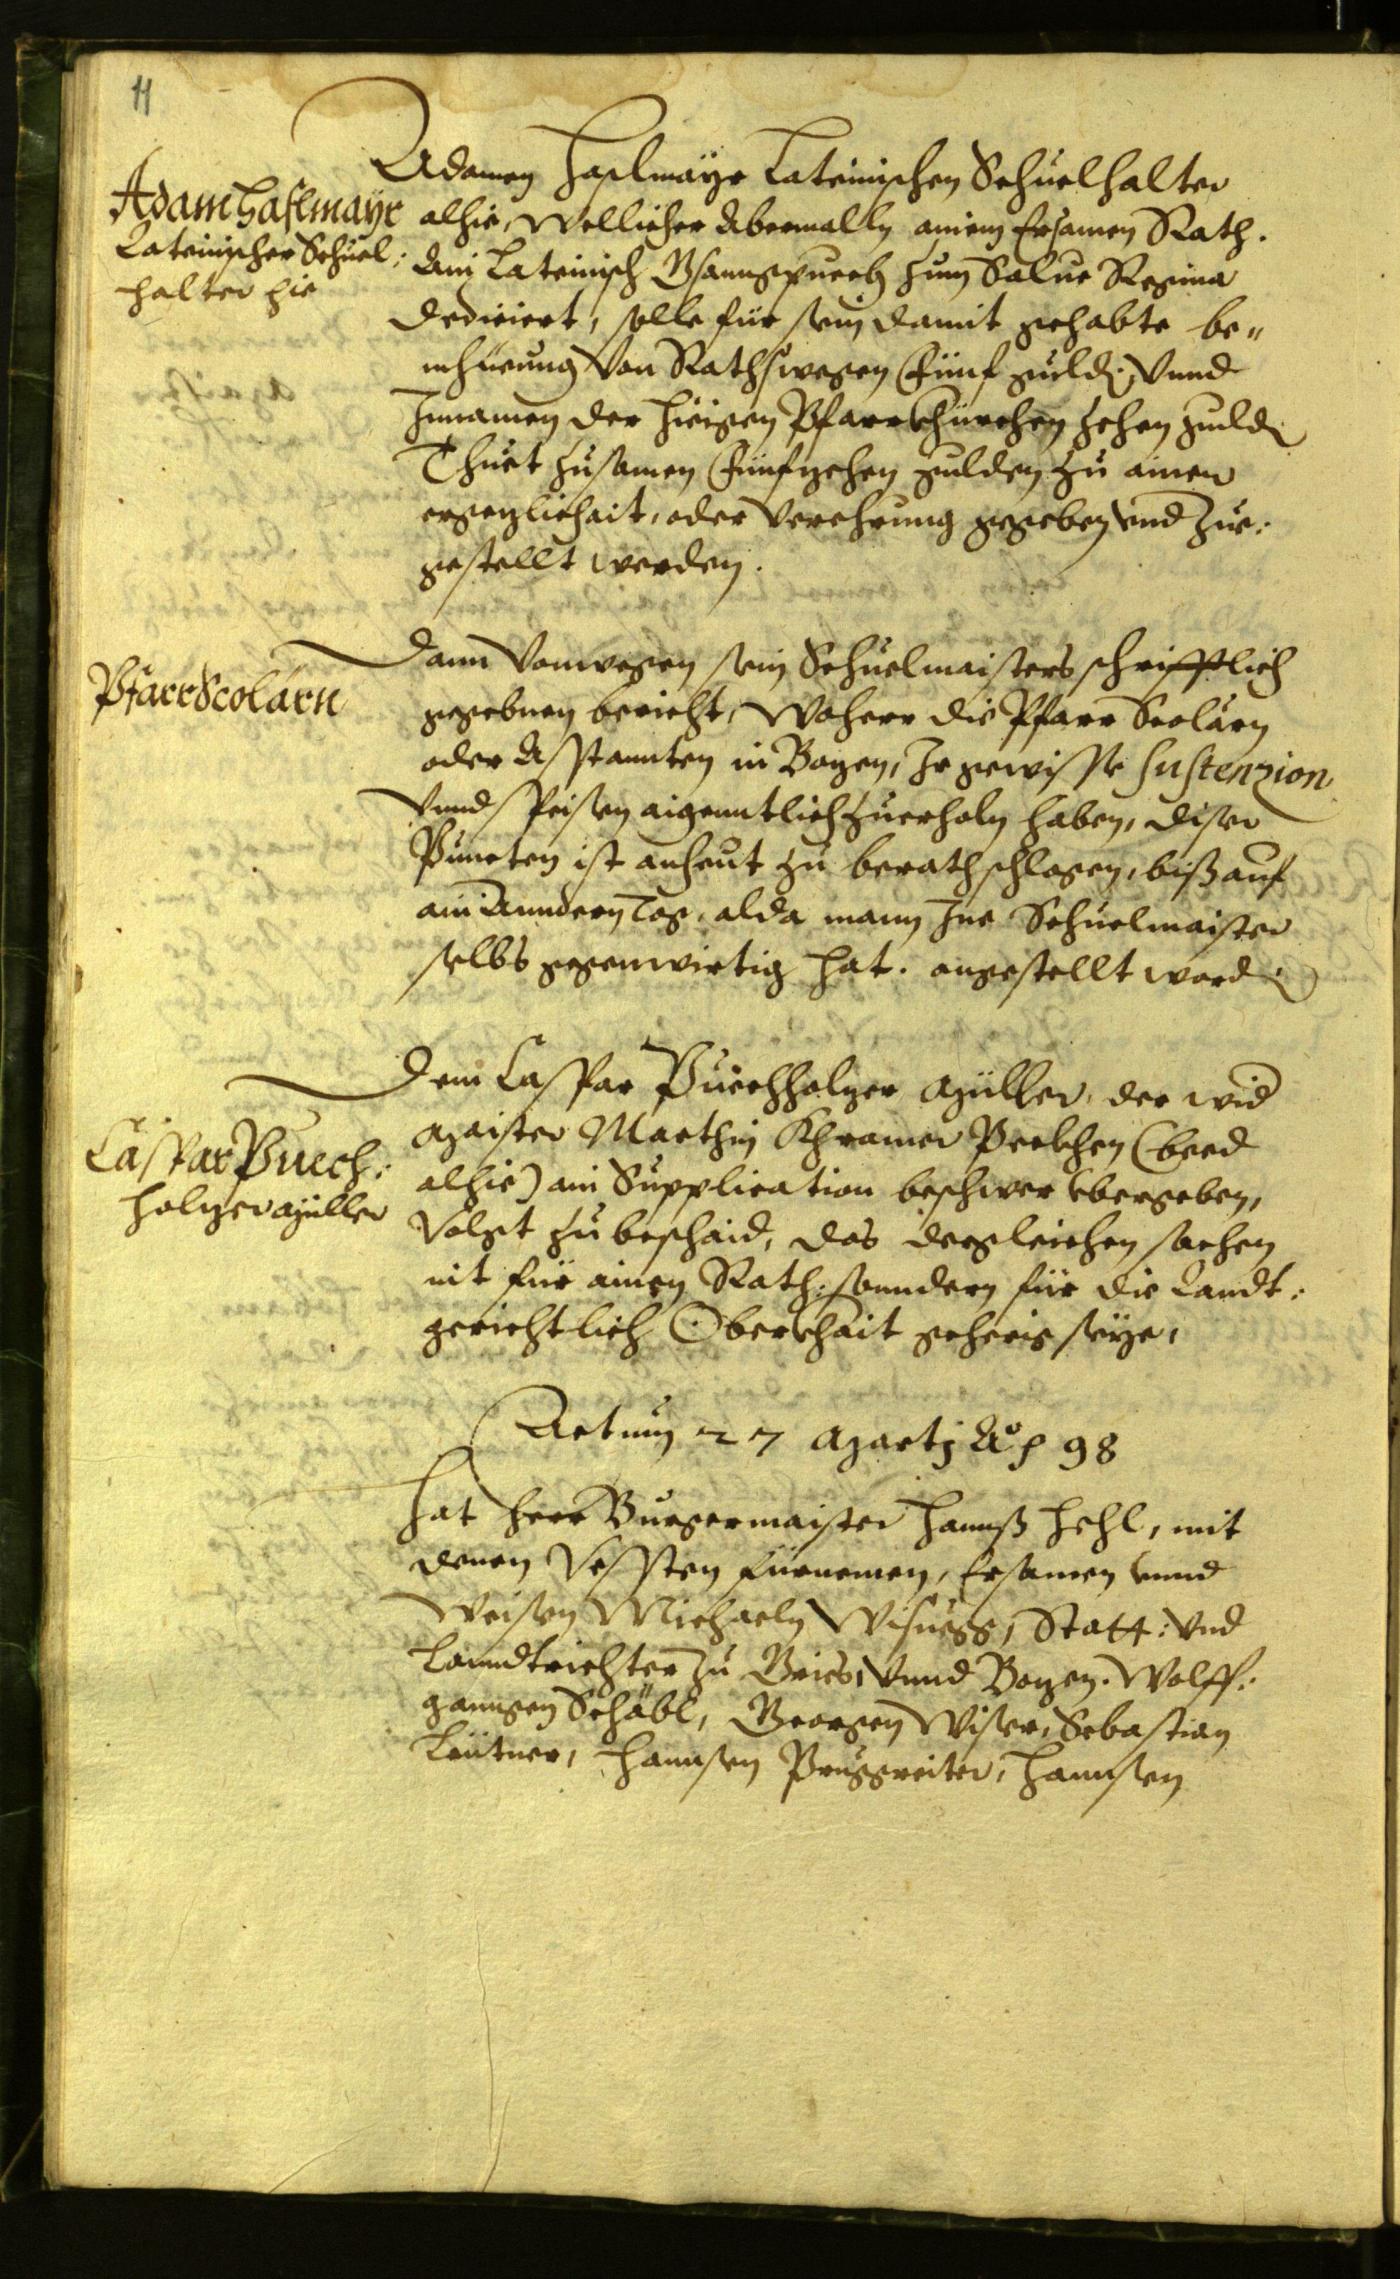 11
Adam Haslmayr
Lateinischer Schuel:
halter hie
Adamen Haslmayr Lateinischen Schuelhalter
alhie, Wellicher Abermalln ainem Ersamen Rath.
Ain Lateinisch Gsanngpuech zum Salue Regina
dediciert, solle für sein damit gehabte be„
mhüeung Von Rathswegen Fünf guld: Vnnd
Innamen der hieigen Pfarrkhürchen Zehen guld:
Thuet zusamen Fünfzehen gulden zu ainer
ergezlichait, oder Verehrung gegeben vnd Zue:
gestellt werden.
PfarrScolarn
Dann Vonwegen sein Schuelmaisters schrifftlich
gegebnen bericht, Woherr die Pfarr Scolarn
oder Asstannten in Bozen, Ir gewisse Sustenzion
Vnnd Speisen aigenntlich zuerholn haben, diser
Puncten ist anheut zu berathschlagen, biß auf
ain Anndern Tag, alda mann Ine Schuelmaister
selbs gegenwirtig hat. angestellt word:
Caspar Puech:
holzer Müller
Dem Caspar Puechholzer Müller, der wid
Maister Marthin Khramer Pecken (beed
alhie) ain Supplication beschwer vbergeben,
Volgt zu beschaid, das dergleichen sachen
nit für ainen Rath: sonndern für die Landt:
gerichtlich Oberkhait geherig seye,
Actum 27 Martj Ao 98
Hat Herr Burgermaister Hannß Hehl, mit
denen Vessten Fürnemen, Ersamen vnnd
Weisen Michaeln Wisuegg, Statt: Vnd
Lanndtrichter zu Gries, Vnnd Bozen. Wolff:
ganngen Schäbl, Georgen Wiser, Sebastian
Leütner, Hannsen Pruggreiter, Hannsen